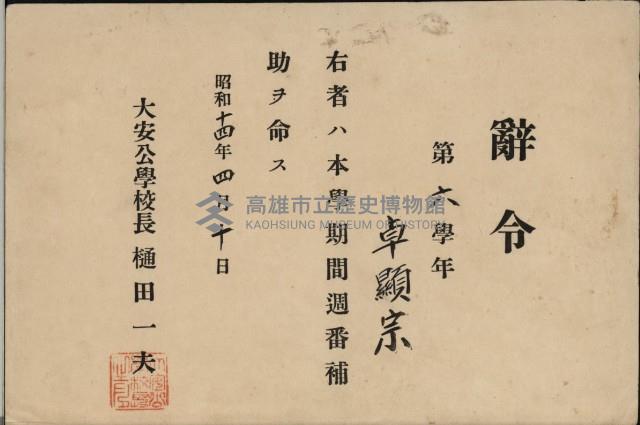 辭令
第六學年
卓顯宗
右者ハ本學期間週番補
助ヲ命ス
昭和十四年四月十日
大安公學校長 樋田一夫
高雄市立歷史博物館
KAOHSIUNG MUSEUM OF HISTORY